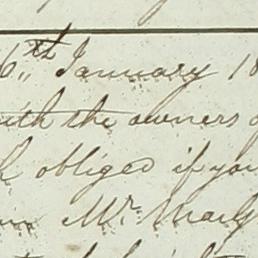 6th January 18
with the owners o
obliged if you
Mr. Mary